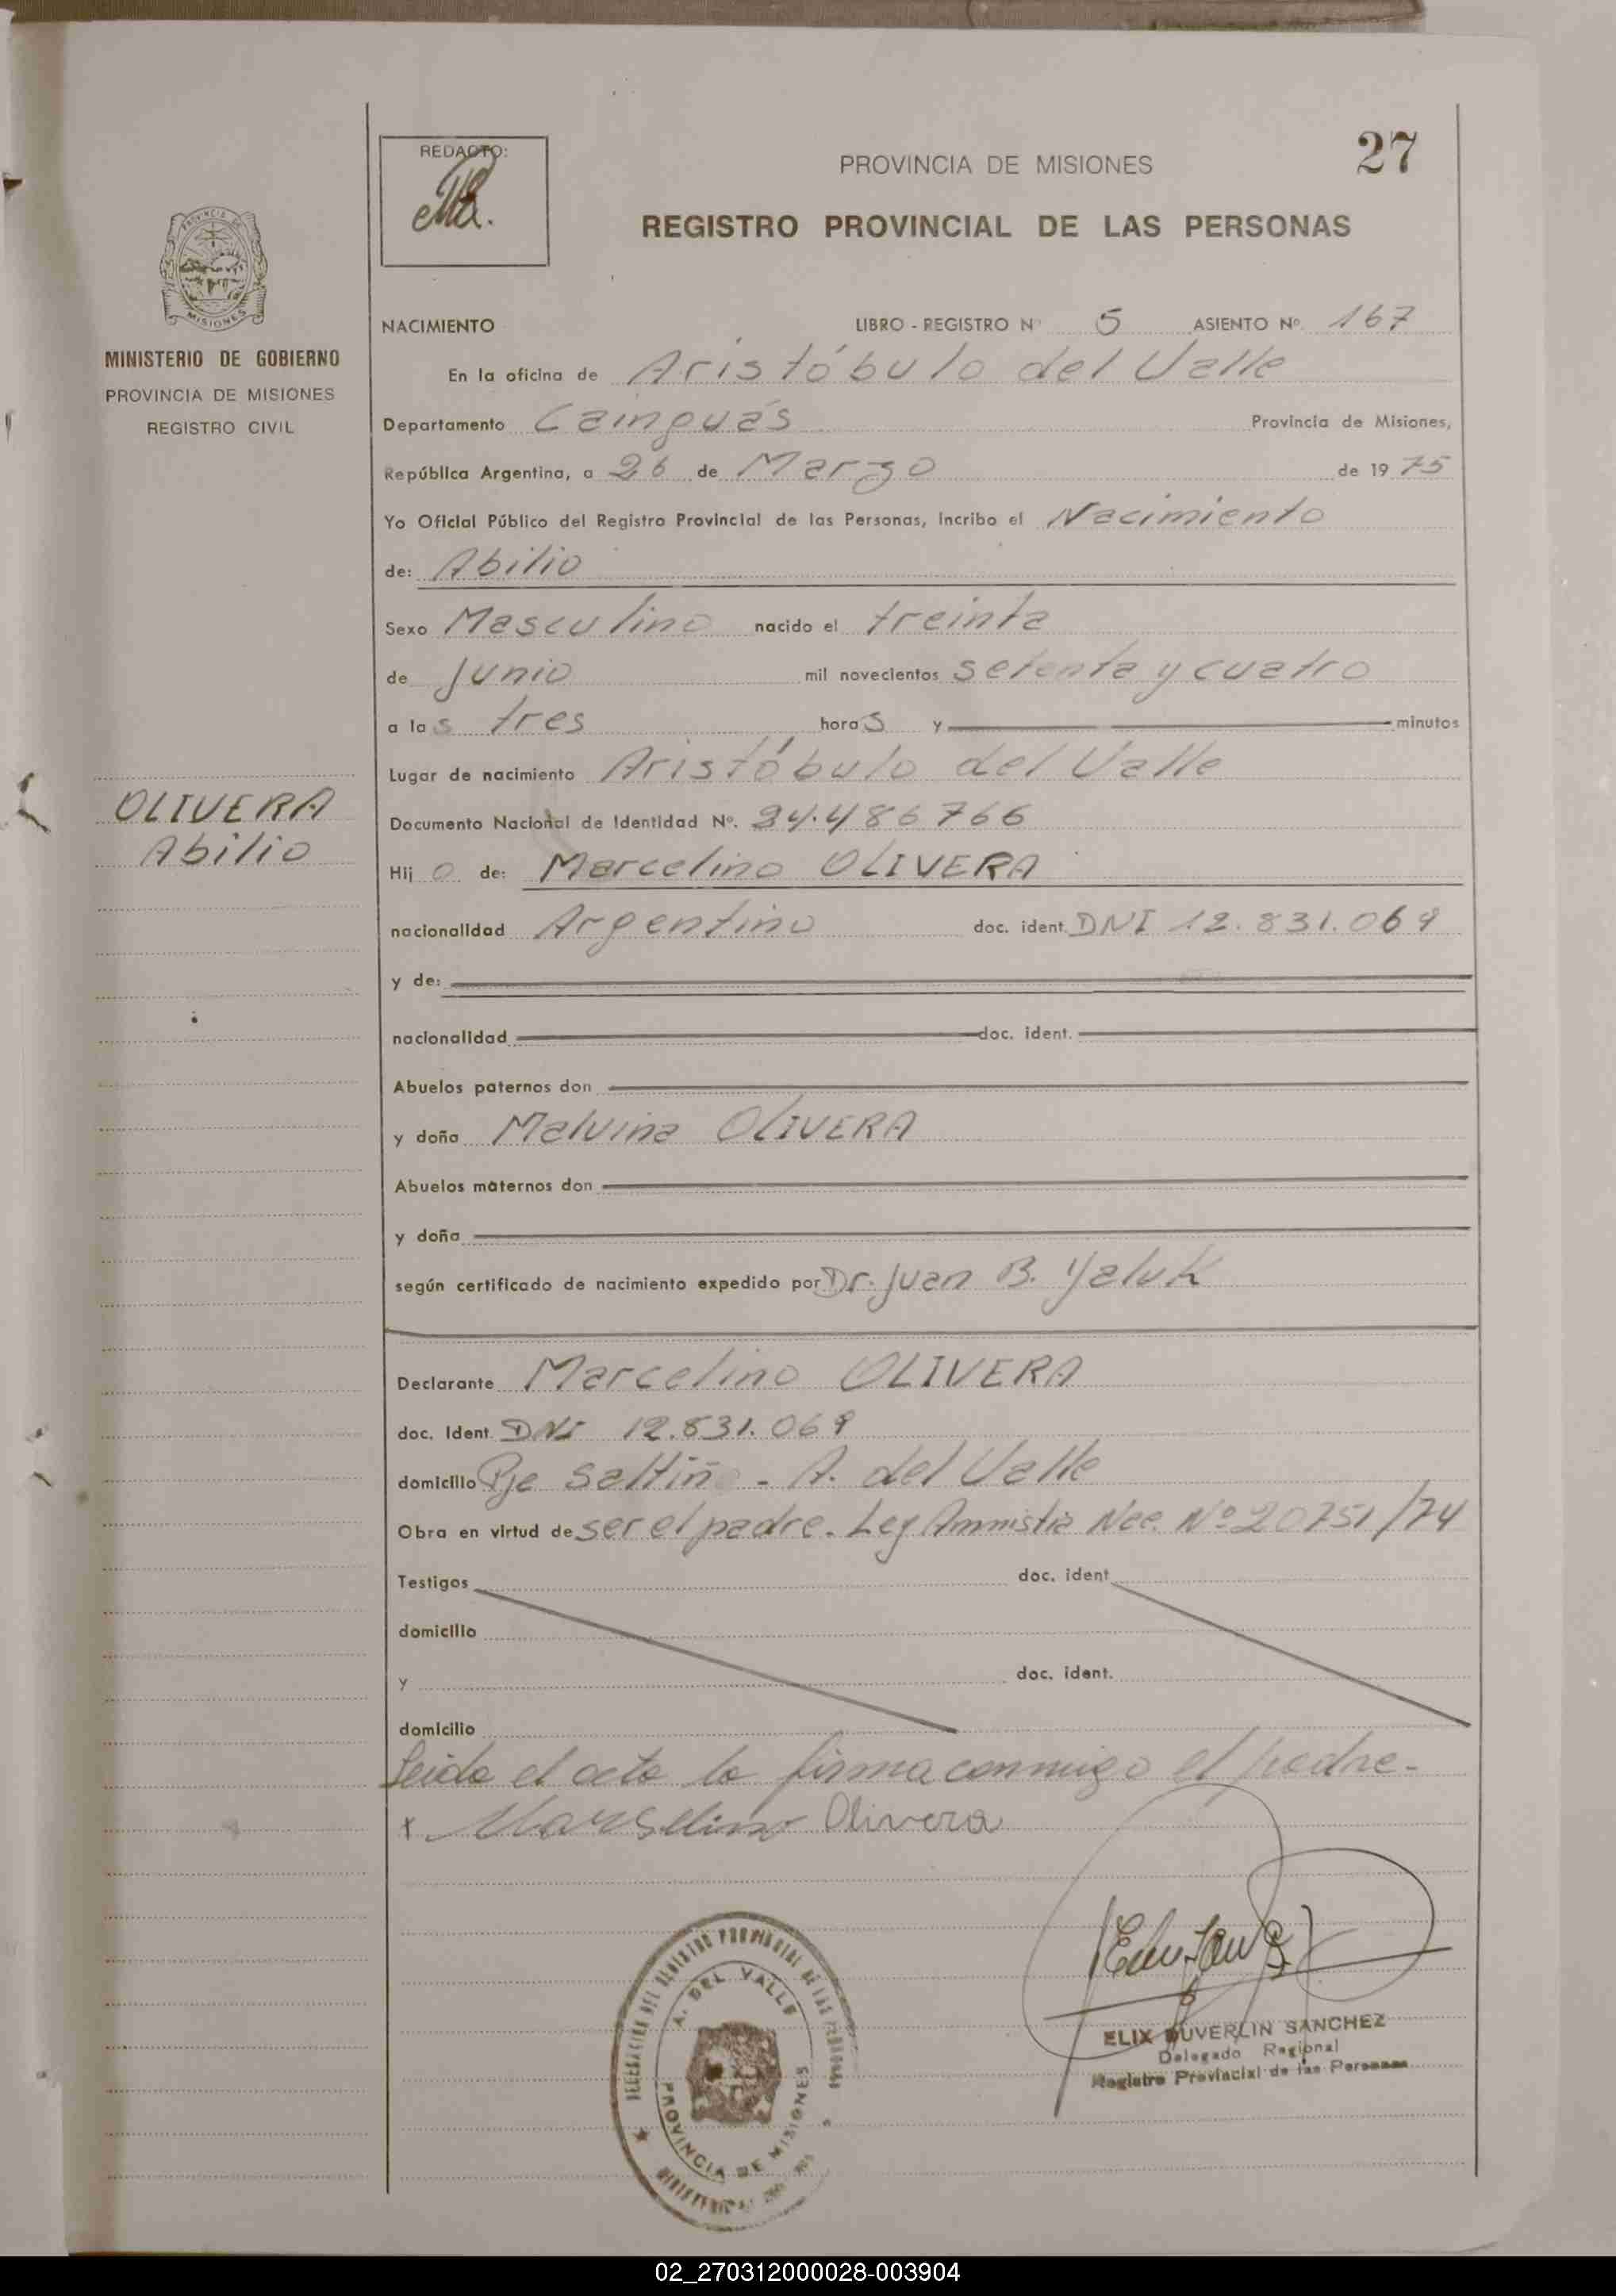 27
REDACTO:
PROVINCIA DE MISIONES
REGISTRO PROVINCIAL DE LAS PERSONAS
MISIONES
MINISTERIO DE GOBIERNO
PROVINCIA DE MISIONES
REGISTRO CIVIL
OLIVERA
Abilio
NACIMIENTO LIBRO - REGISTRO Nº 5 ASIENTO Nº 167
En la oficina de Aristóbulo del Valle
Departamento Cainguás Provincia de Misiones,
República Argentina, a 26 de Marzo de 1975
Yo Oficial Público del Registro Provincial de las Personas, Incribo el Nacimiento
de: Abilio
Sexo Masculino nacido el treinta
de Junio mil novecientos setenta y cuatro
a las tres horas y minutos
Lugar de nacimiento Aristóbulo del Valle
Documento Nacional de Identidad Nº. 24.486766
Hijo de: Marcelino OLIVERA
nacionalidad Argentino doc. ident. DNI 12.831.069
y de:
nacionalidad doc. ident.
Abuelos paternos don
y doña Malvina OLIVERA
Abuelos maternos don
y doña
según certificado de nacimiento expedido por Dr. Juan B. Yaluk
Declarante Marcelino OLIVERA
doc. Ident. DNI 12.831.069
domicilio Pje Saltiño - A. del Valle
Obra en virtud de ser el padre. Ley Amnistia Nac. Nº 20751/74
Testigos doc. ident
domicilio
y doc. ident.
domicilio
Leida el acta la firma conmigo el padre.
x Marselino Olivera
DELEGACION DEL REGISTRO PROVINCIAL DE LAS PERSONAS
A. DEL VALLE
PROVINCIA DE MISIONES
ELIX DUVERLIN SANCHEZ
Delegado Regional
Registro Provincial de las Personas
02_270312000028-003904